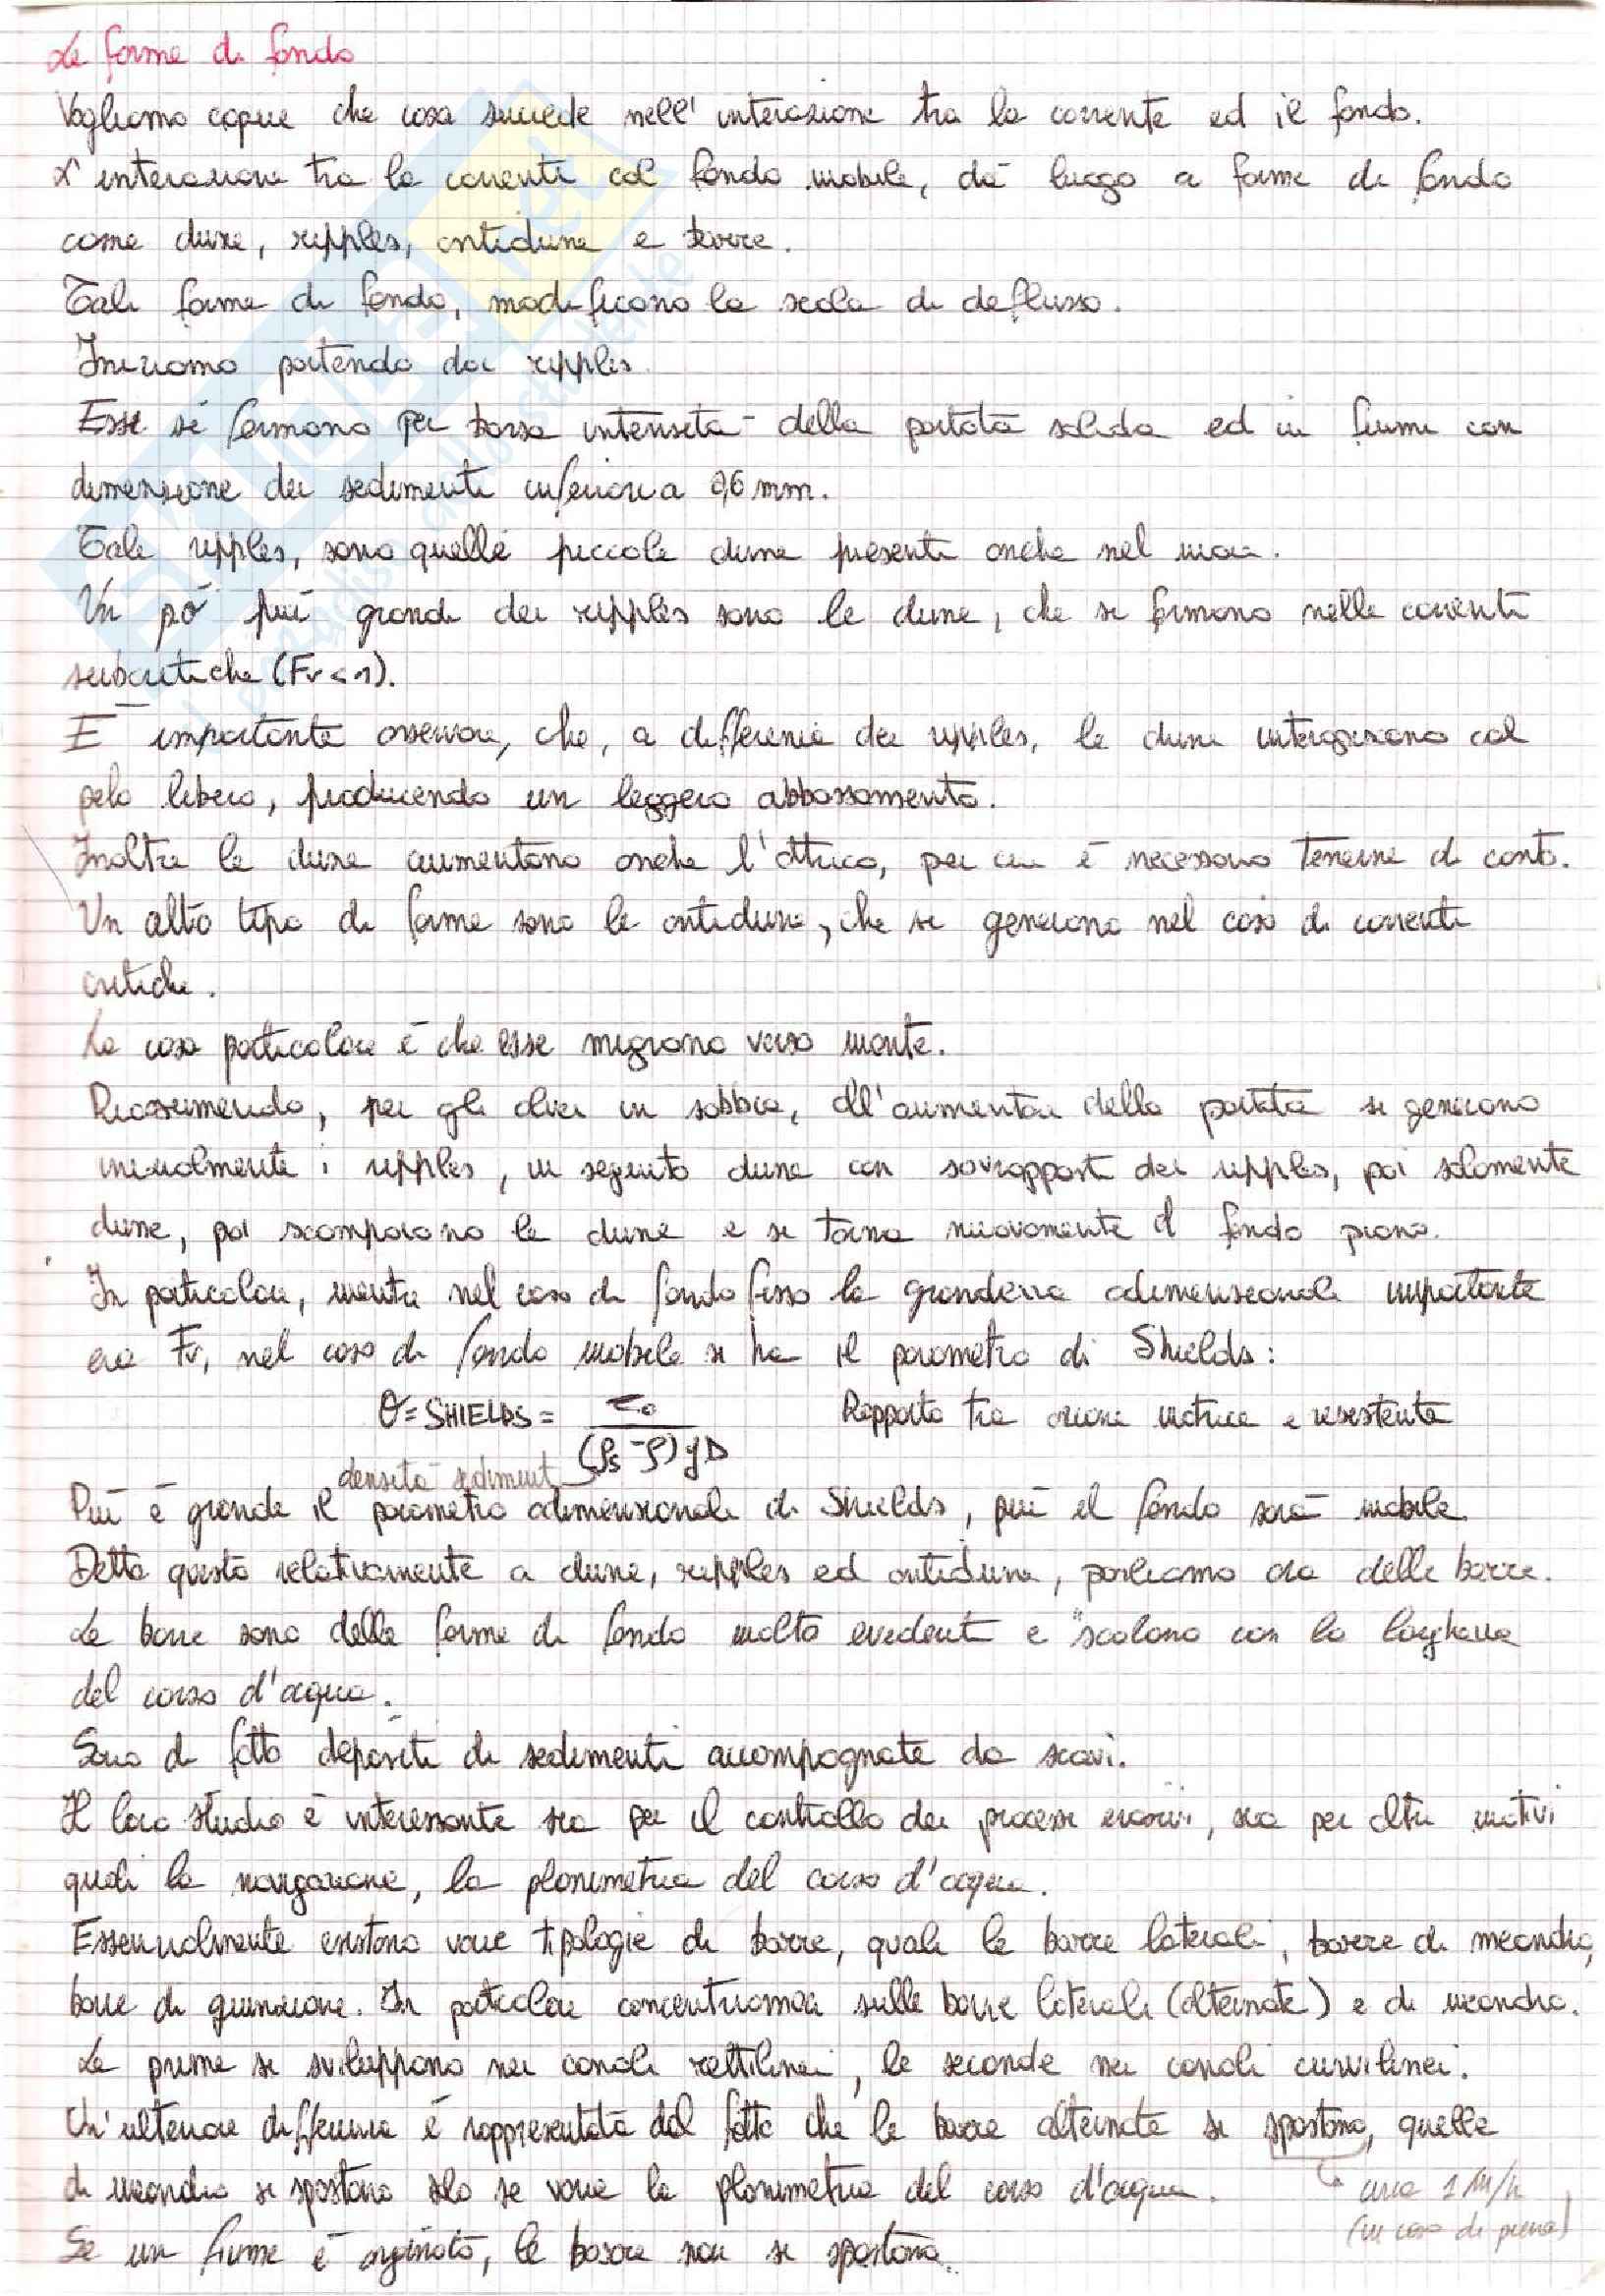 Le forme di fondo
Vogliamo capire che cosa succede nell'interazione tra la corrente ed il fondo.
L'interazione tra la corrente col fondo mobile, dà luogo a forme di fondo
come dune, ripples, antidune e barre.
Tali forme di fondo, modificano la scala di deflusso.
Iniziamo partendo dai ripples.
Essi si formano per bassa intensità della portata solida ed in fiumi con
dimensione dei sedimenti inferiori a 0,6 mm.
Tali ripples, sono quelle piccole dune presenti anche nel mare.
Un pò più grandi dei ripples sono le dune, che si formano nelle correnti
subcritiche (Fr < 1).
E' importante osservare, che, a differenza dei ripples, le dune interagiscono col
pelo libero, producendo un leggero abbassamento.
Inoltre le dune aumentano anche l'attrito, per cui è necessario tenerne di conto.
Un altro tipo di forme sono le antidune, che si generano nel caso di correnti
critiche.
La cosa particolare è che esse migrano verso monte.
Riassumendo, per gli alvei in sabbia, all'aumentare della portata si generano
inizialmente i ripples, in seguito dune con sovrapposti dei ripples, poi solamente
dune, poi scompaiono le dune e si torna nuovamente al fondo piano.
In particolare, mentre nel caso di fondo fisso la grandezza adimensionale importante
era Fr, nel caso di fondo mobile si ha il parametro di Shields:
θ = SHIELDS = τ₀ / (ρs - ρ) g D Rapporto tra azione motrice e resistente
densità sedimenti
Più è grande il parametro adimensionale di Shields, più il fondo sarà mobile.
Detto questo relativamente a dune, ripples ed antidune, parliamo ora delle barre.
Le barre sono delle forme di fondo molto evidenti e "scalano con la larghezza
del corso d'acqua.
Sono di fatto depositi di sedimenti accompagnate da scavi.
Il loro studio è interessante sia per il controllo dei processi erosivi, sia per altri motivi
quali la navigazione, la planimetria del corso d'acqua.
Essenzialmente esistono varie tipologie di barre, quali le barre laterali, barre di meandro,
barre di giunzione. In particolare concentriamoci sulle barre laterali (alternate) e di meandro.
Le prime si sviluppano nei canali rettilinei, le seconde nei canali curvilinei.
Un'ulteriore differenza è rappresentata dal fatto che le barre alternate si spostano, quelle
di meandro si spostano solo se varia la planimetria del corso d'acqua.
circa 1 m/h
(in caso di piena)
Se un fiume è arginato, le barre non si spostano.